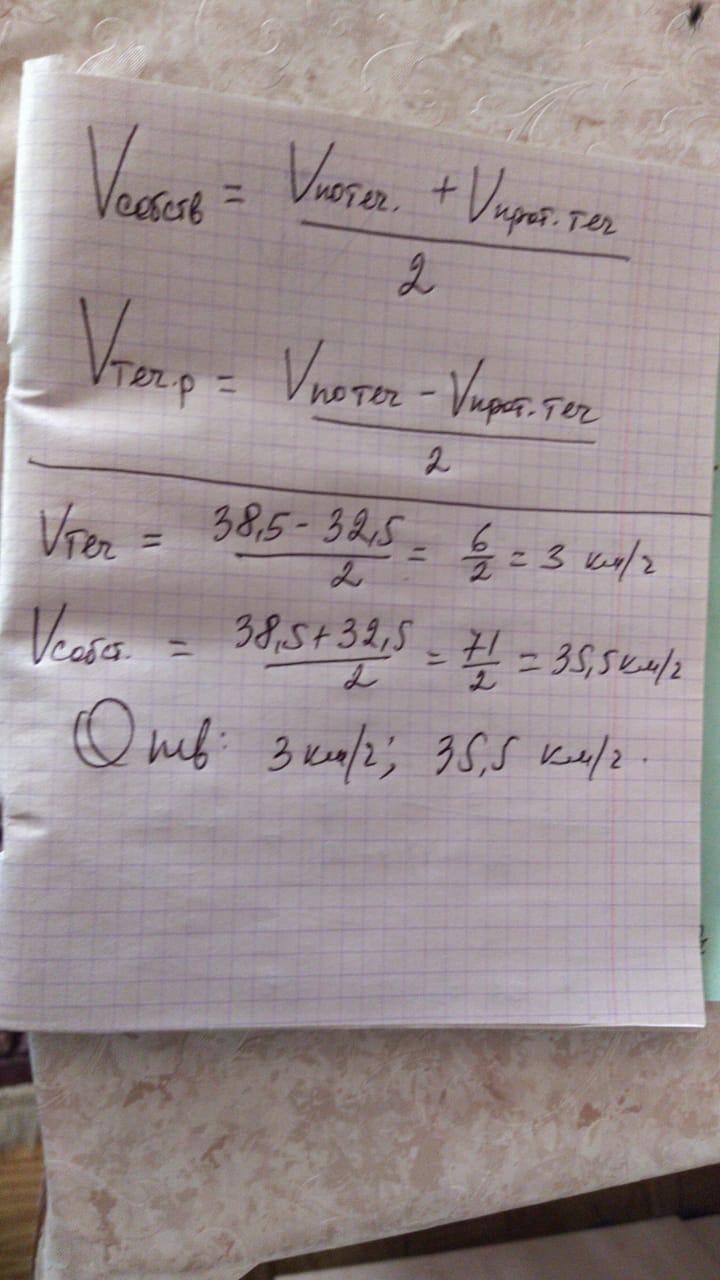 Vсобств = (Vпотеч. + Vпрот.теч)/2
Vтеч.р = (Vпотеч - Vпрот.теч)/2
Vтеч = (38,5 - 32,5)/2 = 6/2 = 3 км/ч
Vсобст. = (38,5 + 32,5)/2 = 71/2 = 35,5 км/ч
Отв: 3 км/ч; 35,5 км/ч.